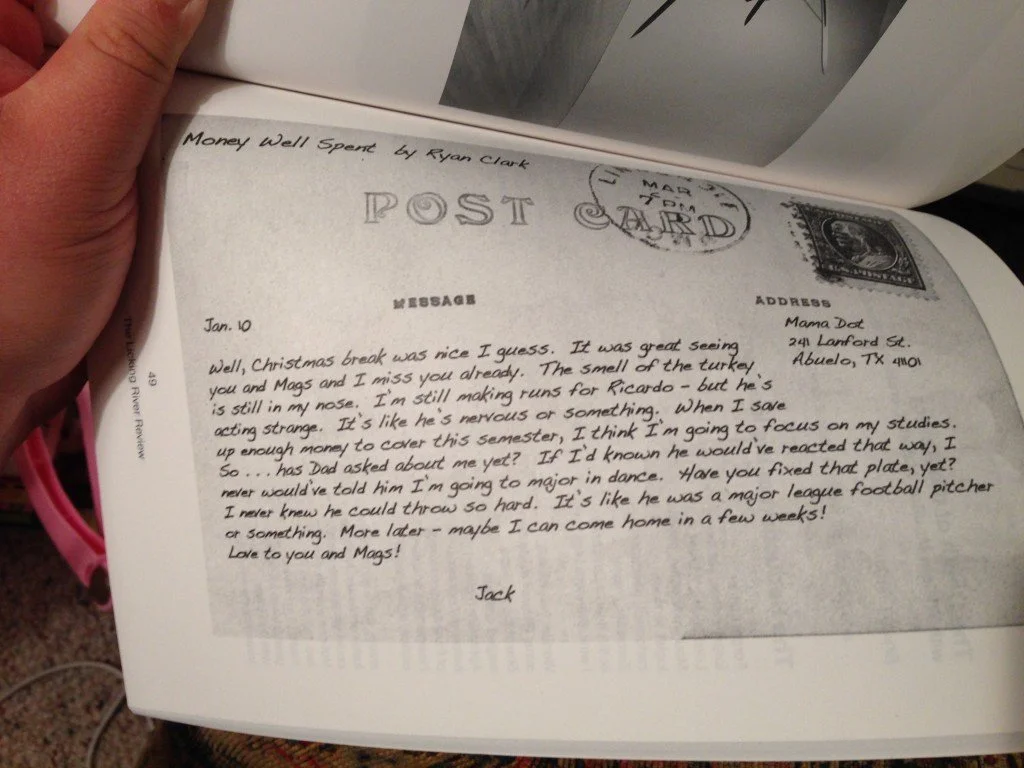 Money Well Spent by Ryan Clark
POST CARD
MAR
7 PM
MESSAGE
ADDRESS
Jan. 10
Mama Dot
241 Lanford St.
Abuelo, TX 41101
Well, Christmas break was nice I guess. It was great seeing
you and Mags and I miss you already. The smell of the turkey
is still in my nose. I'm still making runs for Ricardo - but he's
acting strange. It's like he's nervous or something. When I save
up enough money to cover this semester, I think I'm going to focus on my studies.
So ... has Dad asked about me yet? If I'd known he would've reacted that way, I
never would've told him I'm going to major in dance. Have you fixed that plate, yet?
I never knew he could throw so hard. It's like he was a major league football pitcher
or something. More later - maybe I can come home in a few weeks!
Love to you and Mags!
Jack
49
The Looking River Review